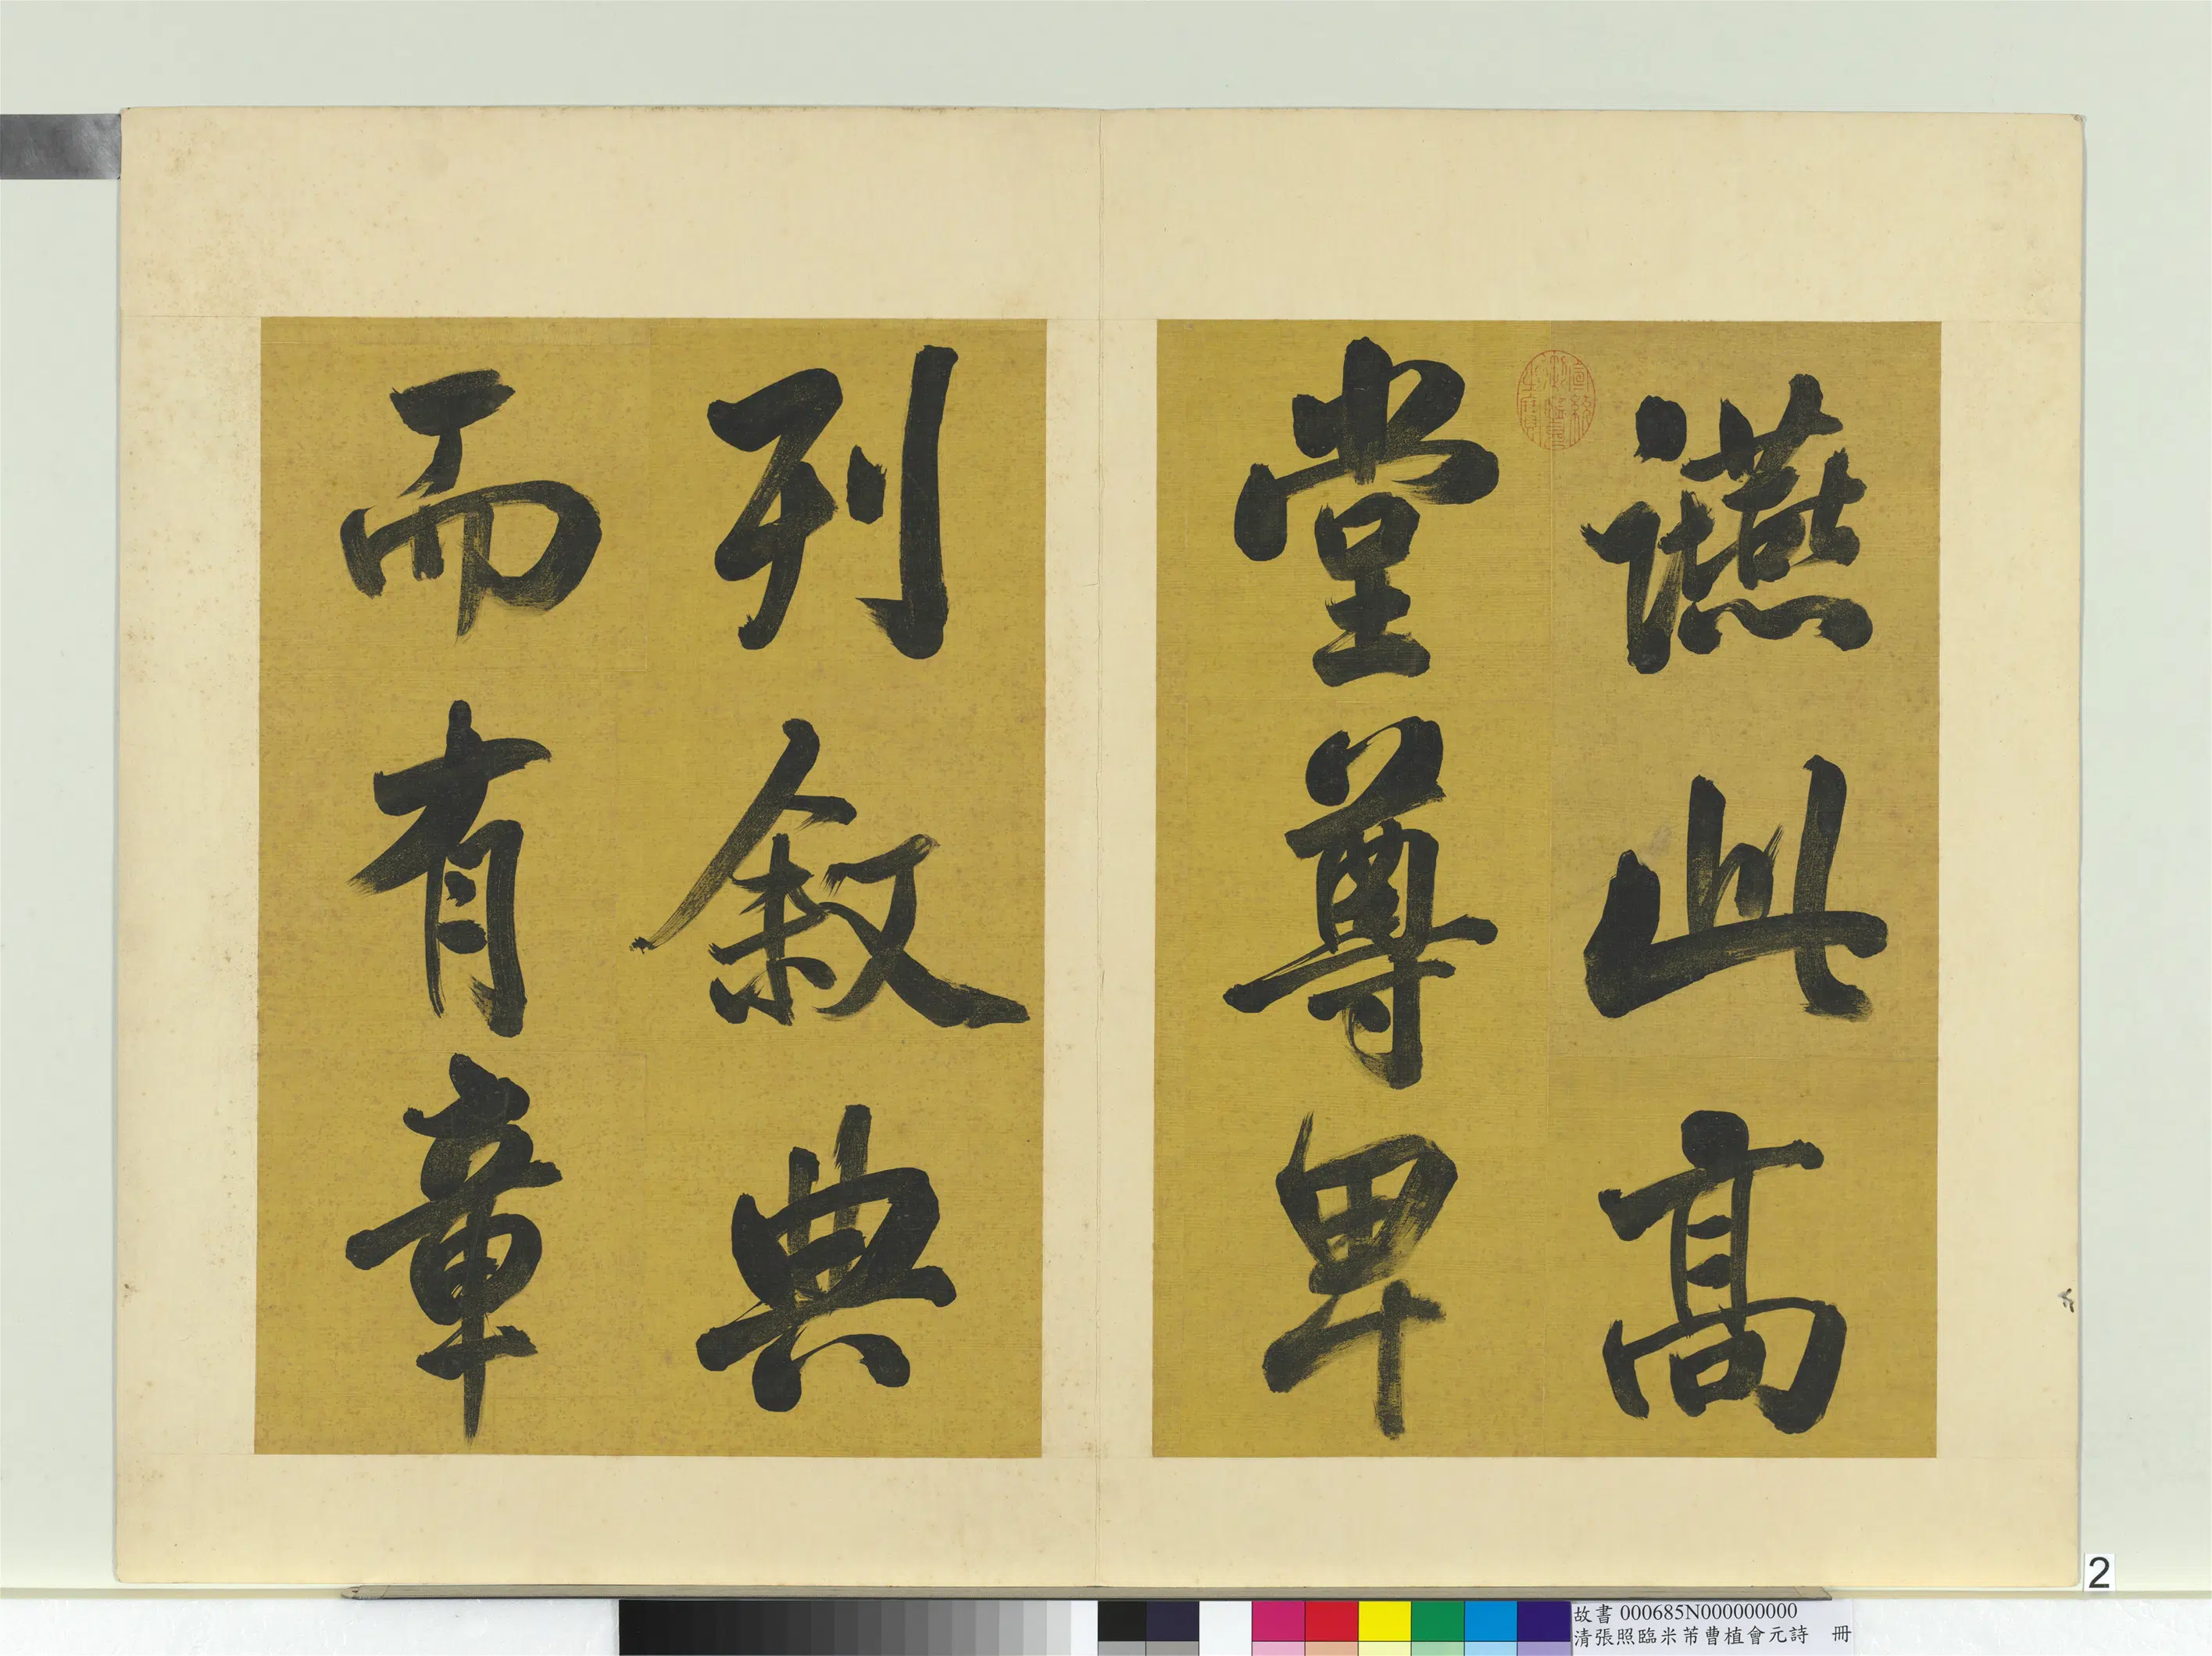 讌此高
堂尊卑
列敘典
而有章
宣統御覽之寶
2
故書 000685N000000000
清張照臨米芾曹植會元詩 冊